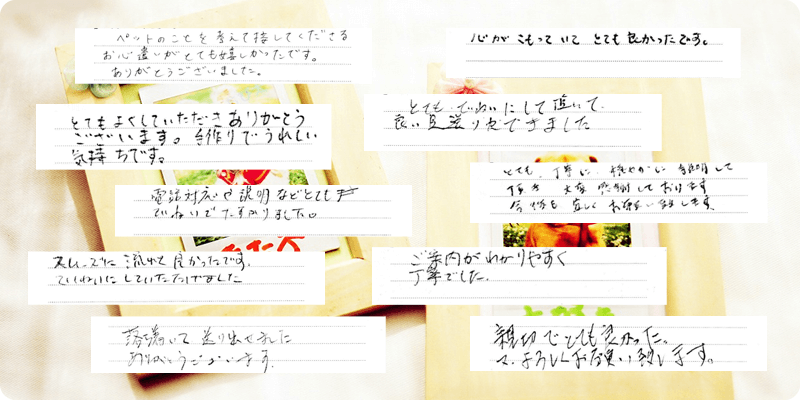 ペットのことを考えて接してくださる
お心遣いがとても嬉しかったです。
ありがとうございました。
心がこもっていてとても良かったです。
とてもよくしていただきありがとう
ございます。手作りでうれしい
気持ちです。
とてもていねいにして頂いて、
良い見送りができました
電話対応や説明などとても
ていねいでたすかりました。
とても、丁寧に、穏やかに説明して
頂き大変感謝しております
今後も宜しくお願い致します。
スムーズに流れて良かったです。
ていねいにしていただけました
ご案内がわかりやすく
丁寧でした。
落ち着いて送り出せました
ありがとうございます。
親切でとても良かった。
よろしくお願い致します。